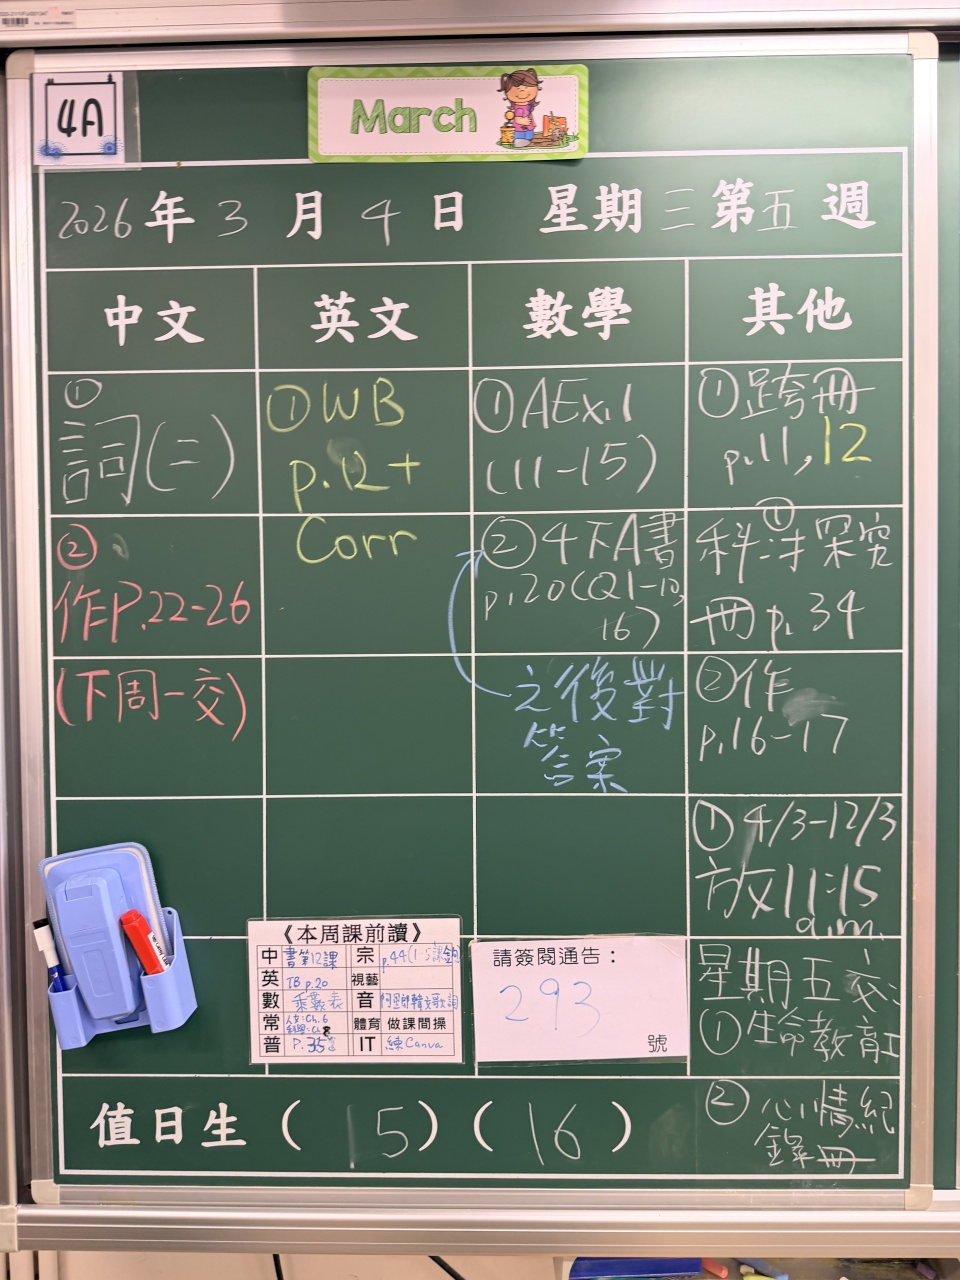 4A
March
2026年3月4日 星期三第五週
中文
英文
數學
其他
①
詞(二)
②
作P.22-26
(下周一交)
①WB
p.12+
Corr
①AEx.1
(11-15)
②4下A書
p.20(Q1-10,
16)
之後對
答案
①跨冊
p.11,12
①
科 探究
冊p.34
②作
p.16-17
①4/3-12/3
放11:15
a.m.
星期五交:
①生命教育工
②心情紀
錄冊
《本周課前讀》
中 書第12課
宗 p.44(1-5課
英 TB p.20
視藝
數 乘數表
音 歌詞
常 Ch.6
Ch.8
體育 做課間操
普 P.35
IT 練Canva
請簽閱通告：
293
號
值日生(15)(16)